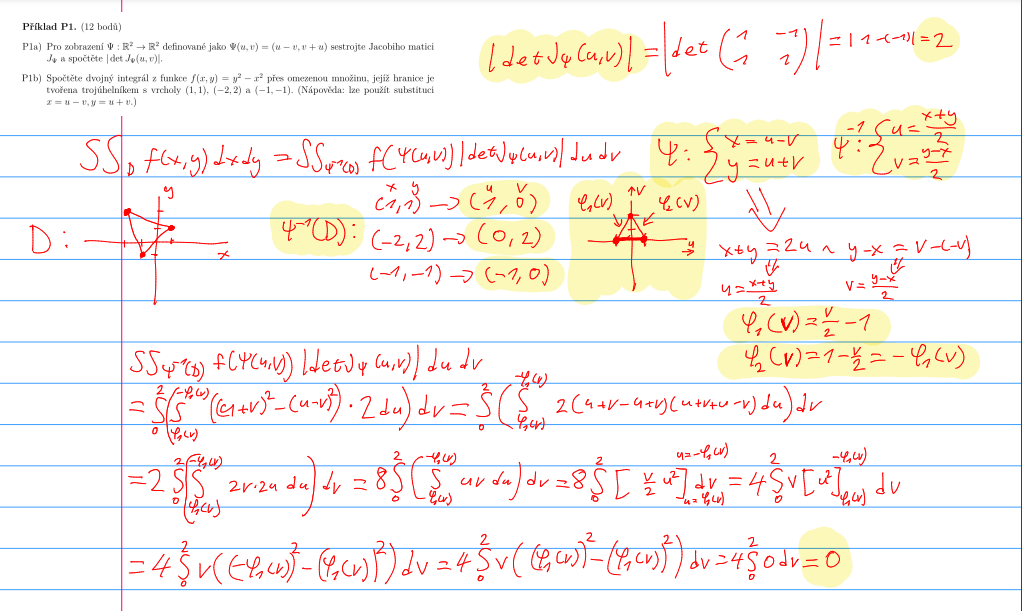 Příklad P1. (12 bodů)
P1a) Pro zobrazení Ψ : ℝ² → ℝ² definované jako Ψ(u, v) = (u − v, v + u) sestrojte Jacobiho matici
J_Ψ a spočtěte | det J_Ψ(u, v)|.
P1b) Spočtěte dvojný integrál z funkce f(x, y) = y² − x² přes omezenou množinu, jejíž hranice je
tvořena trojúhelníkem s vrcholy (1, 1), (−2, 2) a (−1, −1). (Nápověda: lze použít substituci
x = u − v, y = u + v.)
|det J_Ψ(u,v)| = |det (1 −1 1 1)| = |1 −(−1)| = 2
∫∫_D f(x,y) dx dy = ∫∫_Ψ⁻¹(D) f(Ψ(u,v)) |det J_Ψ(u,v)| du dv
Ψ: { x = u−v
y = u+v
Ψ⁻¹: { u = (x+y)/2
v = (y−x)/2
D:
y
x
Ψ⁻¹(D):
x y u v
(1,1) → (1,0)
(−2,2) → (0,2)
(−1,−1) → (−1,0)
φ₁(v) v φ₂(v)
u
x+y = 2u ∧ y−x = v−(−v)
u = (x+y)/2 v = (y−x)/2
φ₁(v) = v/2 − 1
φ₂(v) = 1 − v/2 = −φ₁(v)
∫∫_Ψ⁻¹(D) f(Ψ(u,v)) |det J_Ψ(u,v)| du dv
= ∫₀² (∫_{φ₁(v)}^{−φ₁(v)} ((u+v)² − (u−v)²) · 2 du) dv = ∫₀² (∫_{φ₁(v)}^{−φ₁(v)} 2(u+v−u+v)(u+v+u−v) du) dv
= 2 ∫₀² (∫_{φ₁(v)}^{−φ₁(v)} 2v·2u du) dv = 8 ∫₀² (∫_{φ₁(v)}^{−φ₁(v)} uv du) dv = 8 ∫₀² [v/2 u²]_{u=φ₁(v)}^{u=−φ₁(v)} dv = 4 ∫₀² v [u²]_{φ₁(v)}^{−φ₁(v)} dv
= 4 ∫₀² v((−φ₁(v))² − (φ₁(v))²) dv = 4 ∫₀² v((φ₁(v))² − (φ₁(v))²) dv = 4 ∫₀² 0 dv = 0